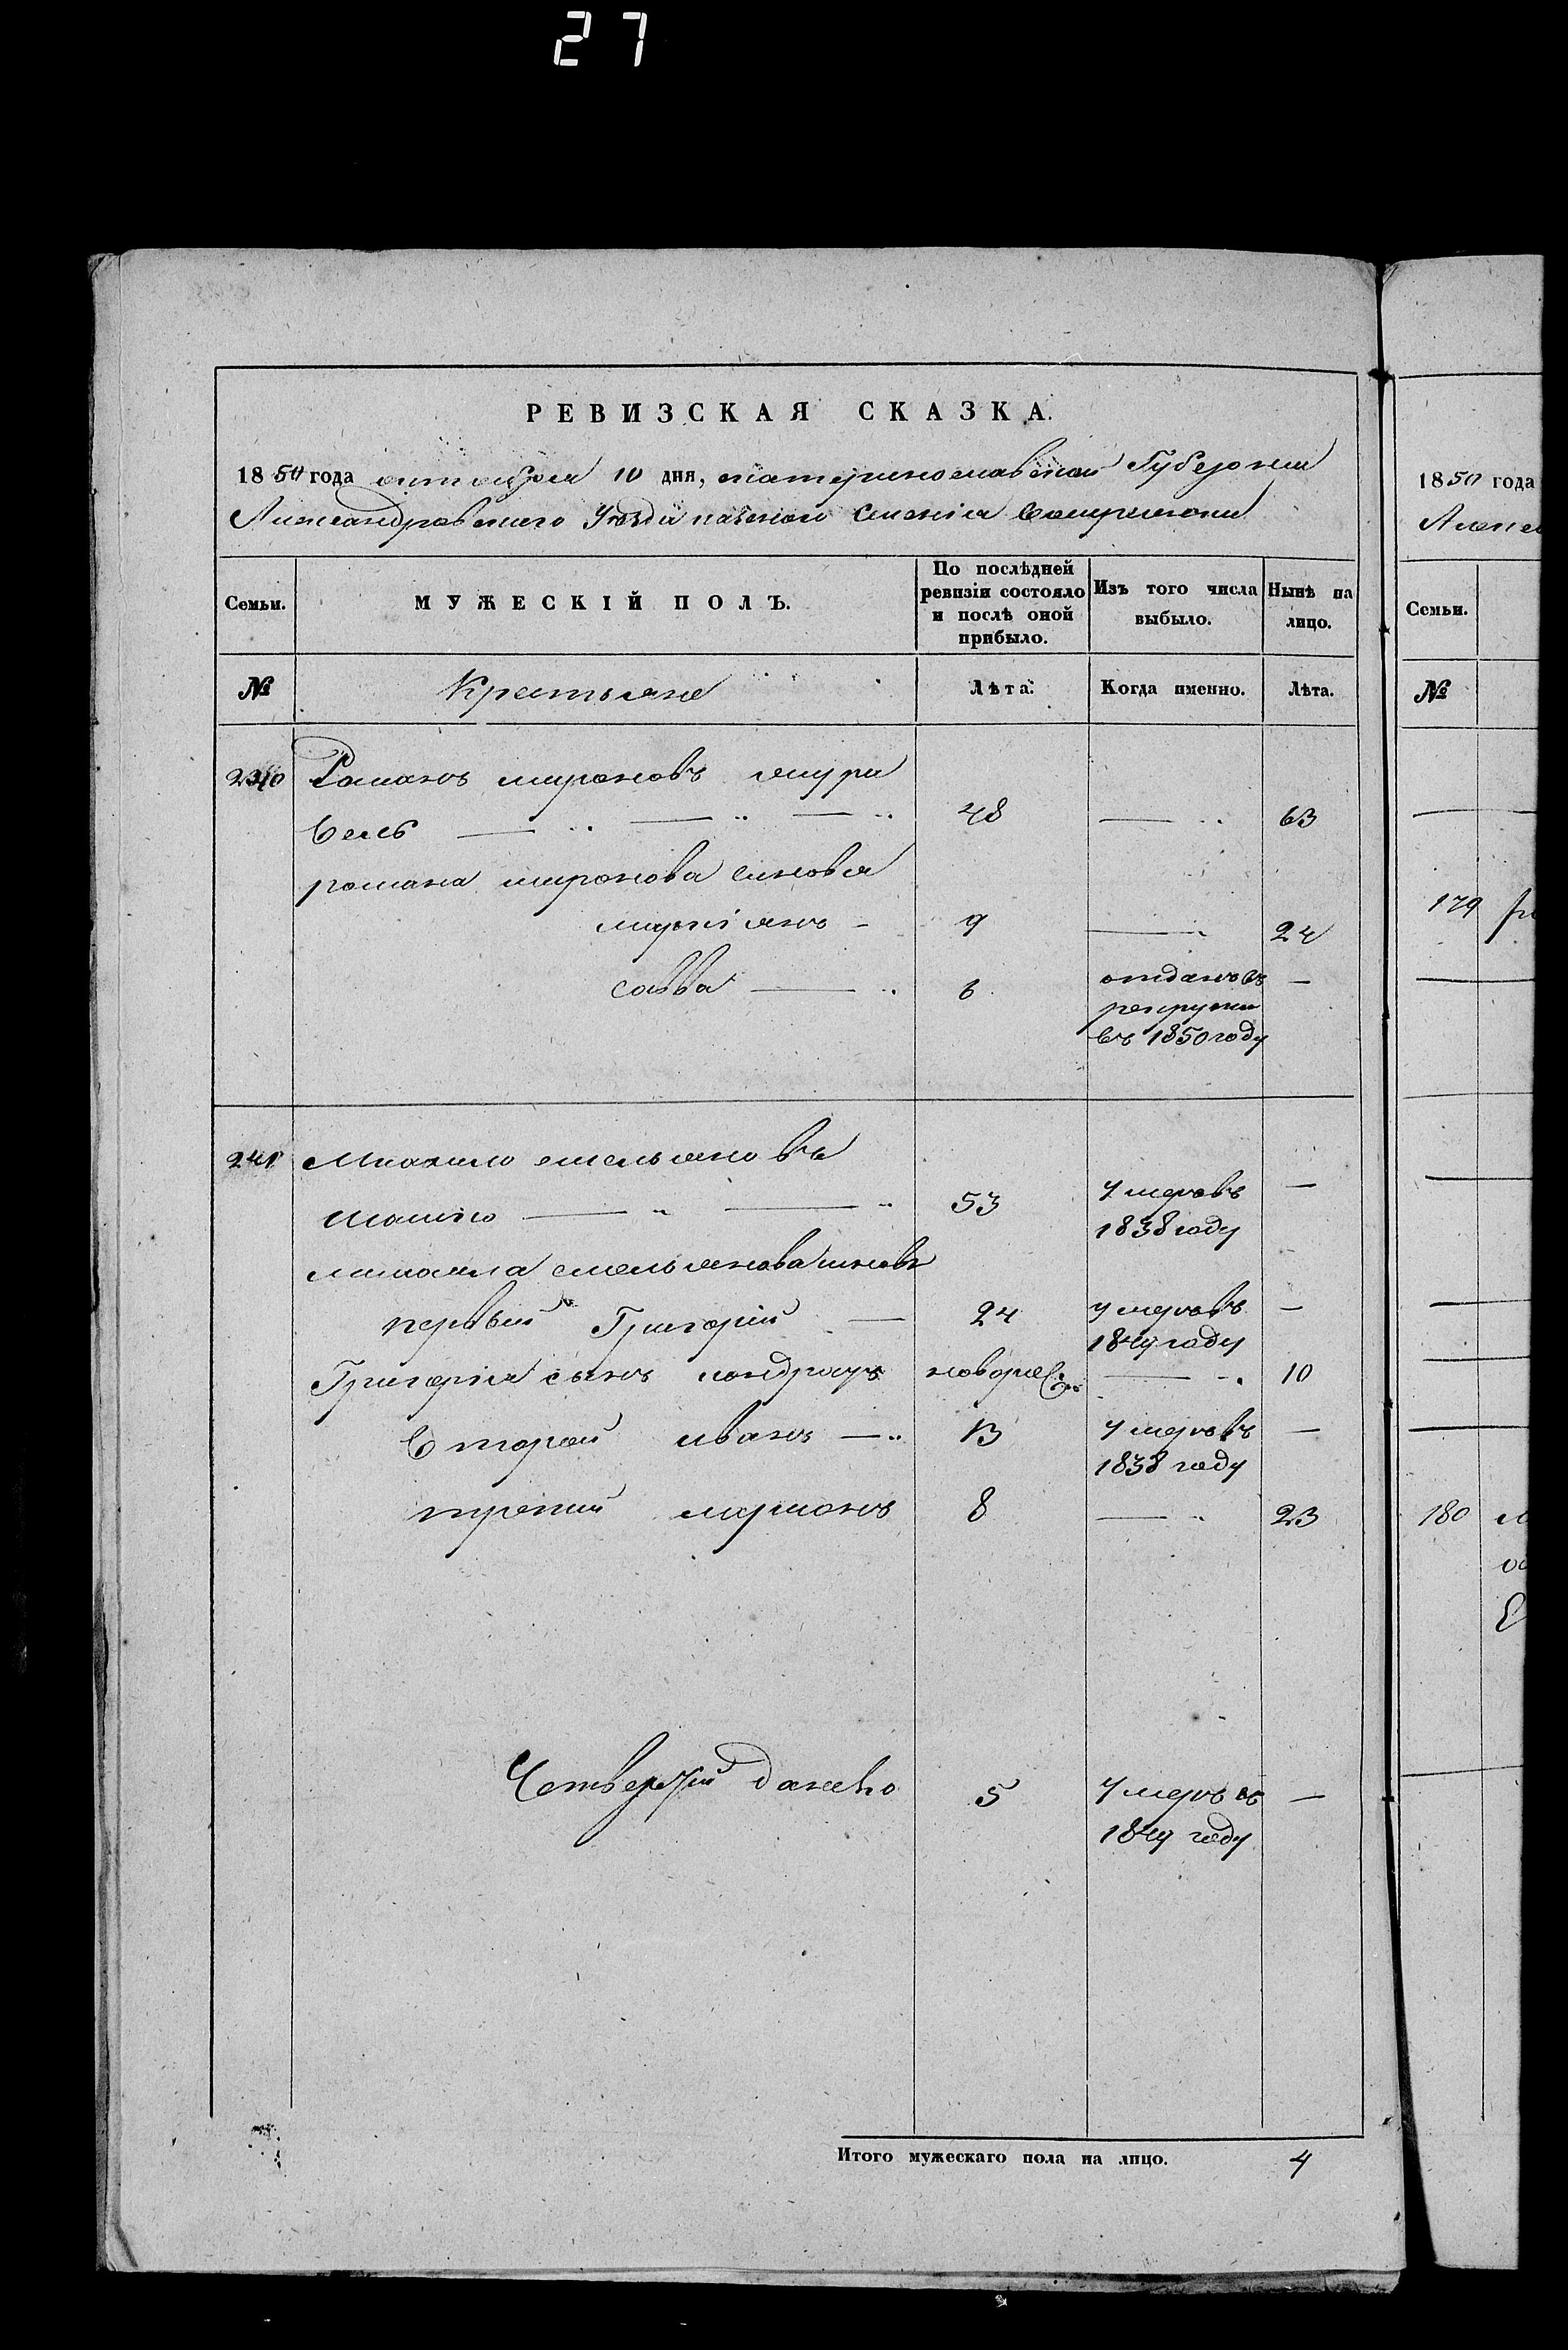 27
РЕВИЗСКАЯ СКАЗКА.
1850 года октября 10 дня, екатеринославской Губернии
Александровского Уезда казенного Селенія
Семьи.
МУЖЕСКІЙ ПОЛЪ.
По послѣдней ревизіи состояло и послѣ оной прибыло.
Изъ того числа выбыло.
Нынѣ на лицо.
№ Крестьяне Лѣта. Когда именно. Лѣта.
240 Романъ мироновъ
48 — 63
романа миронова синовя
маркіянъ — 9 — 24
савва — 6 отданъ въ —
рекруты
въ 1850 году
241 Михайло емельяновъ
53 умеръ въ —
1838 году
михаила емельянова синовя
первый Григорій — 24 умеръ въ —
1849 году
Григорія сынъ кондратъ новорож — 10
второй иванъ — 13 умеръ въ —
1838 году
третий ларионъ 8 — 23
Четвертий данило 5 умеръ въ —
1849 году
Итого мужескаго пола на лицо. 4
1850 года
Алекса
Семьи.
№
179
180